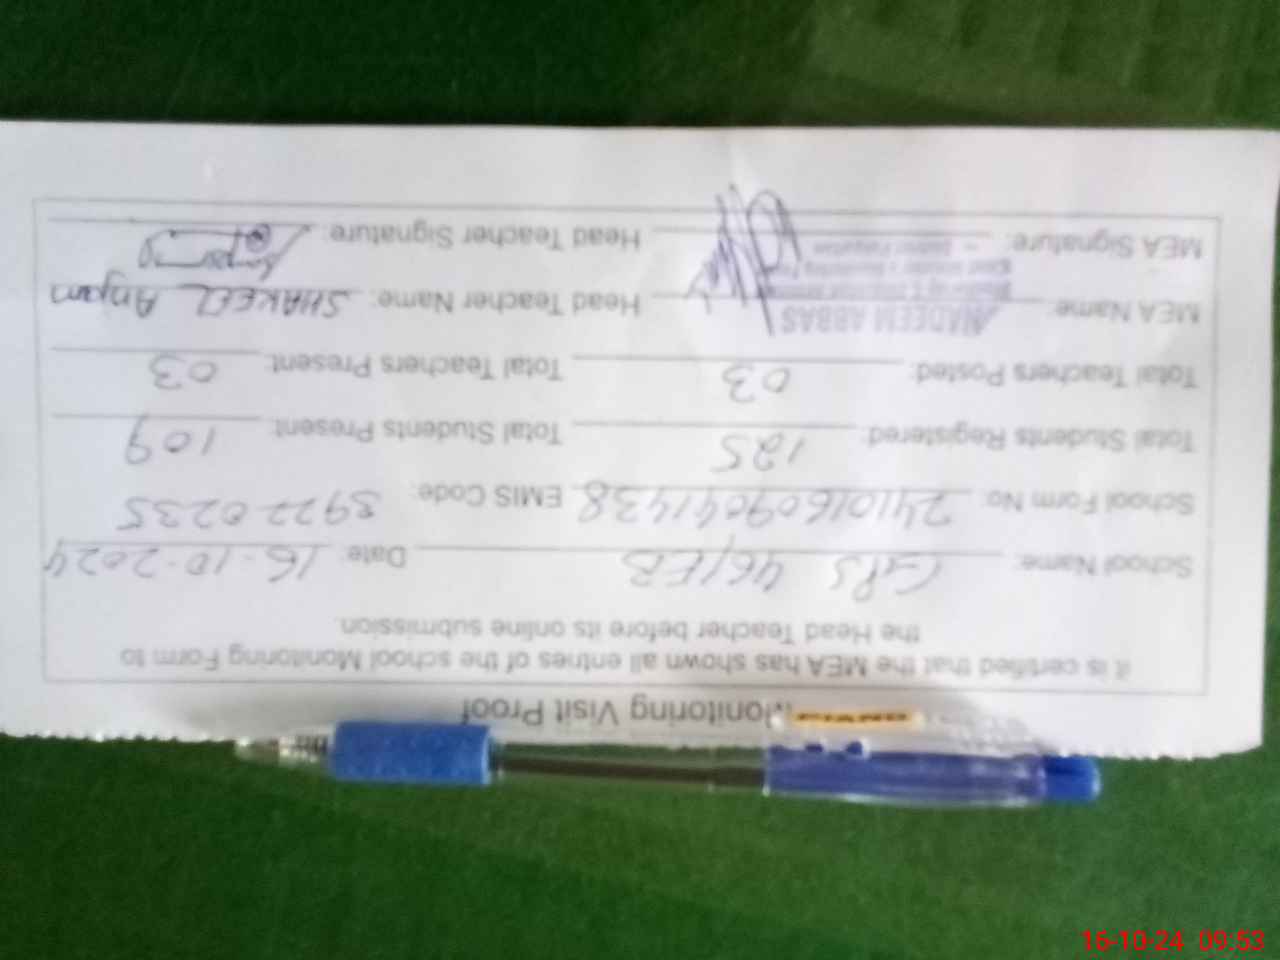 Monitoring Visit Proof
it is certified that the MEA has shown all entries of the school Monitoring Form to
the Head Teacher before its online submission.
School Name: GPS 461/EB Date: 16-10-2024
School Form No: 24101609041438 EMIS Code: 39220235
Total Students Registered: 125 Total Students Present: 109
Total Teachers Posted: 03 Total Teachers Present: 03
MEA Name: NADEEM ABBAS Head Teacher Name: SHAKEEL Anjam
MEA Signature: Head Teacher Signature:
16-10-24 09:53